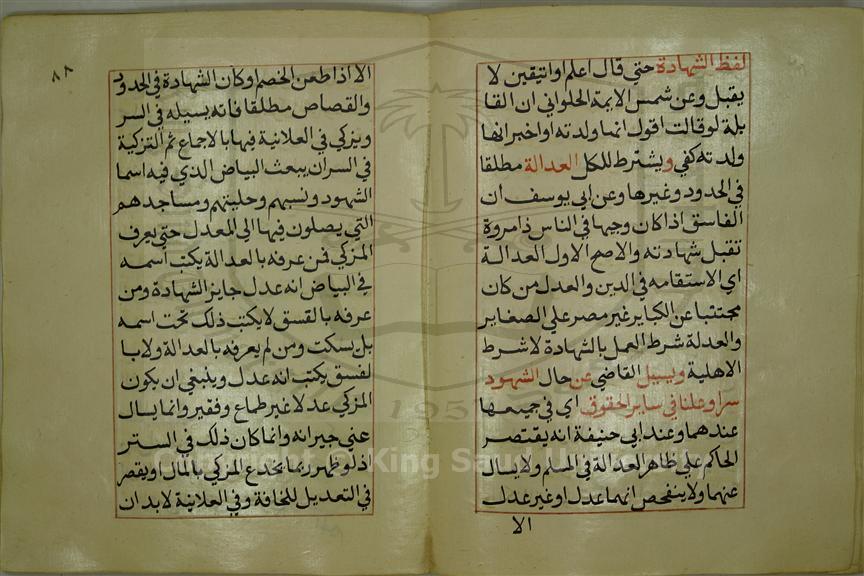 لفظ الشهادة حتي قال اعلم اواتيقين لا
يقبل وعن شمس الايمة الحلواني ان القا
بلة لو قالت اقول انها ولدته او اخبر انها
ولدته كفي ويشترط للكل العدالة مطلقا
في الحدود وغيرها وعن ابي يوسف ان
الفاسق اذا كان وجيها في الناس ذا مروة
تقبل شهادته والاصح الاول العدالة
اي الاستقامه في الدين والعدل من كان
مجتنبا عن الكباير غير مصر علي الصغاير
والعدلة شرط العمل بالشهادة لا شرط
الاهلية ويسيل القاضي عن حال الشهود
سرا وعلنا في ساير الحقوق اي في جميعها
عندهما وعند ابي حنيفة انه يقتصر
الحاكم علي ظاهر العدالة في المسلم ولا يسال
عنهما ولا يتفحص انهما عدل او غير عدل
الا
٨٨
الا اذا طعن الخصم او كان الشهادة في الحدود
والقصاص مطلقا فانه يسيله في السر
ويزكي في العلانية فيها بالاجماع ثم التزكية
في السر ان يبعث البياض الذي فيه اسما
الشهود ونسبهم وحليتهم ومساجدهم
التي يصلون فيها الي المعدل حتي يعرف
المزكي فمن عرفه بالعدالة يكتب اسمه
في البياض انه عدل جايز الشهادة ومن
عرفه بالفسق لا يكتب ذلك تحت اسمه
بل يسكت ومن لم يعرفه بالعدالة ولا با
لفسق يكتب انه عدل وينبغي ان يكون
المزكي عدلا غير طماع وفقير وانما يسال
عني جيرانه وانما كان ذلك في الستر
اذ لو ظهر ربما يخدع المزكي بالمال او يقصر
في التعديل للخافة وفي العلانية لا بد ان
Copyright © King Saud University
1957